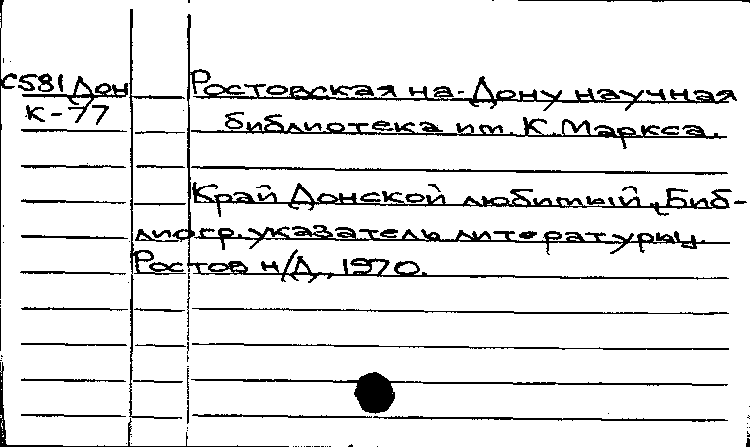 С581Дон
К-77
Ростовская на-Дону научная
библиотека им. К. Маркса.
Край Донской любимый, [Биб-
лиогр. указатель литературы].
Ростов н/Д, 1970.